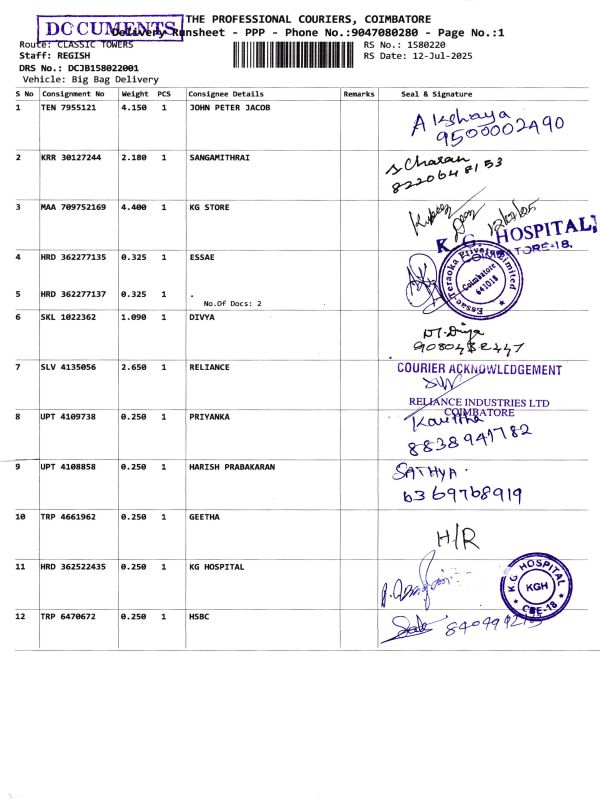 THE PROFESSIONAL COURIERS, COIMBATORE
DOCUMENTS
Delivery Runsheet - PPP - Phone No.:9047080280 - Page No.:1
Route: CLASSIC TOWERS
RS No.: 1580220
Staff: REGISH
RS Date: 12-Jul-2025
DRS No.: DCJB158022001
Vehicle: Big Bag Delivery
S No Consignment No Weight PCS Consignee Details Remarks Seal & Signature
1 TEN 7955121 4.150 1 JOHN PETER JACOB
Akshaya
9500002490
2 KRR 30127244 2.180 1 SANGAMITHRAI
S Charan
8220648153
3 MAA 709752169 4.400 1 KG STORE
K. G. HOSPITAL,
TORE-18.
4 HRD 362277135 0.325 1 ESSAE
Essae-Teraoka Private Limited
Coimbatore
641018
5 HRD 362277137 0.325 1 .
No.Of Docs: 2
6 SKL 1022362 1.090 1 DIVYA
7 SLV 4135056 2.650 1 RELIANCE
COURIER ACKNOWLEDGEMENT
RELIANCE INDUSTRIES LTD
COIMBATORE
8 UPT 4109738 0.250 1 PRIYANKA
Kavitha
8838941782
9 UPT 4108858 0.250 1 HARISH PRABAKARAN
SATHYA.
6369768919
10 TRP 4661962 0.250 1 GEETHA
H/R
11 HRD 362522435 0.250 1 KG HOSPITAL
K.G. HOSPITAL
KGH
CBE-18
12 TRP 6470672 0.250 1 HSBC